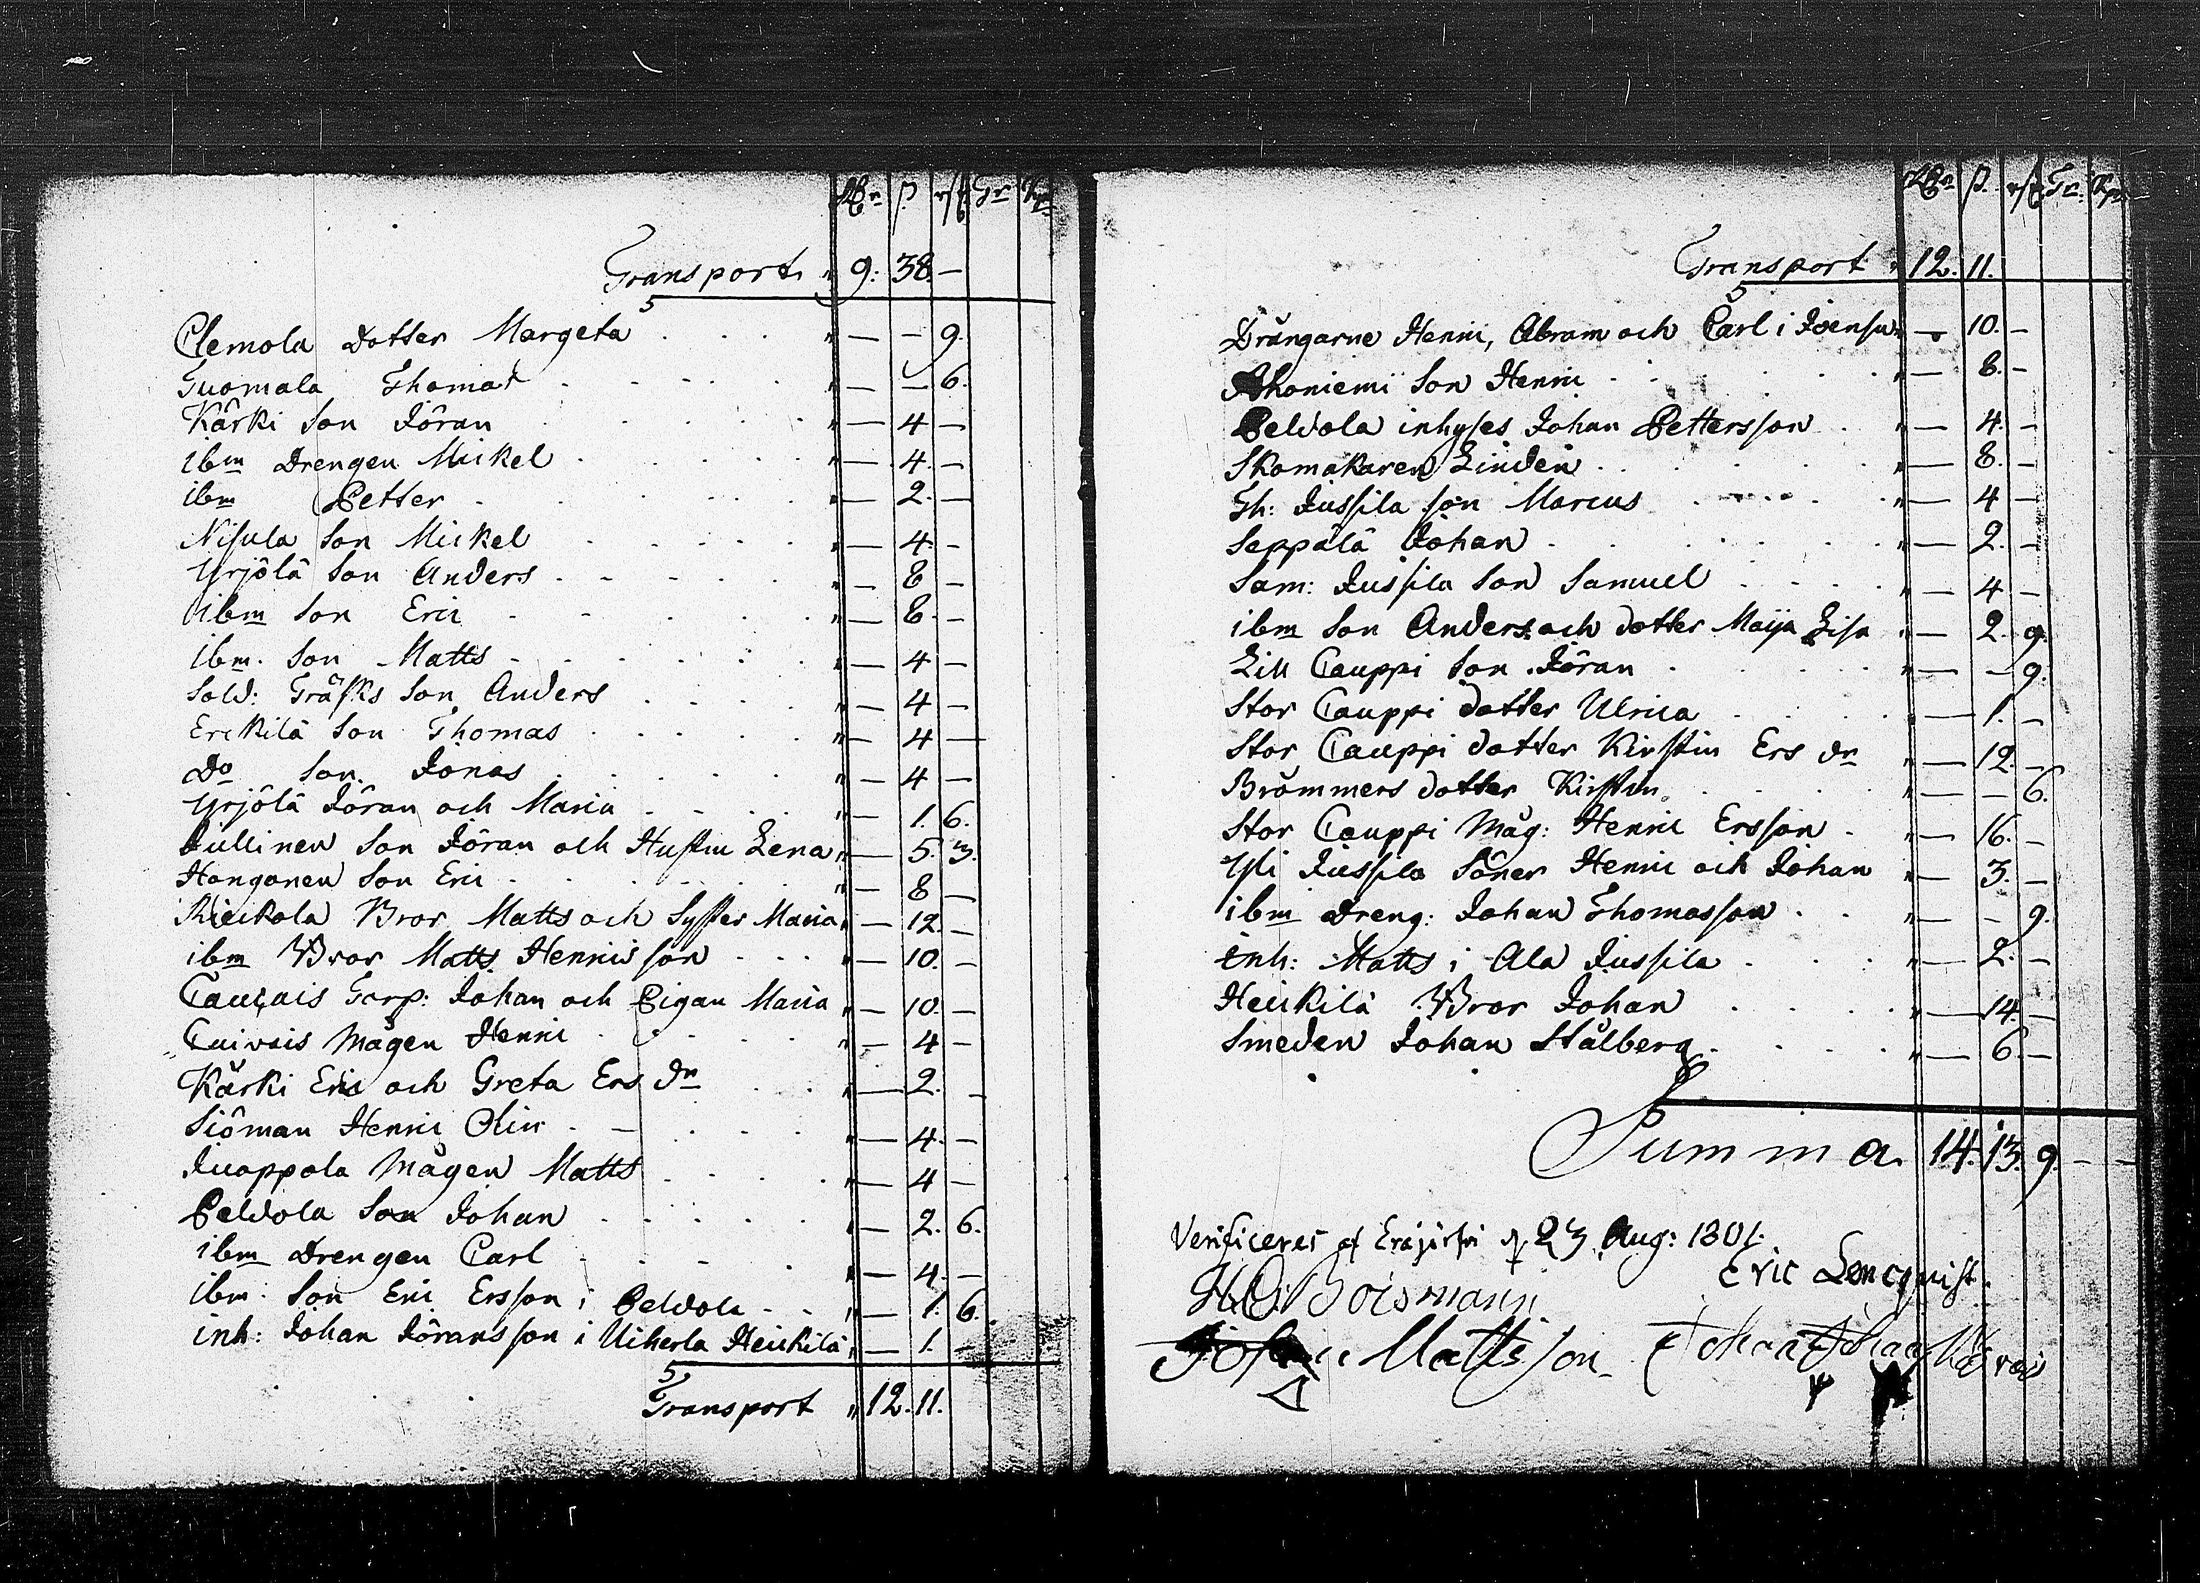 Rr ß. rſt Gr Kpr
Transport " 9: 38. —
Clemola Dotter Margeta . . . " — — 9.
Tuomala Thomas . . . . " — — 6.
Kärki Son Jöran . . . . " — 4 —
ibm Drengen Mickel . . . . " — 4. —
ibm Petter . . . . " — 2. —
Nisula Son Mickel . . . . " — 4. —
Yrjölä Son Anders . . . . " — 8 —
ibm Son Eric . . . . " — 8. —
ibm. Son Matts . . . . " — 4 —
Sold: Gräsks Son Anders . . . . " — 4 —
Erckilä Son Thomas . . . . " — 4 —
Do Son Jonas . . . . " — 4 —
Yrjölä Jöran och Maria . . . . " — 1. 6.
Jullinen Son Jöran och Hustru Lena " — 5. 3.
Hongonen Son Eric . . . . " — 8 —
Rieckola Bror Matts och Syster Maria " — 12. —
ibm Bror Matts Hennisson . . . " — 10. —
Torp: Johan och Pigan Maria " — 10. —
Cuivais Mågen Henric . . . . " — 4 —
Kärki Eric och Greta Ers dr . . " — 2. —
Siöman Henric Olin . . . . " — 4. —
Juoppola Mågen Matts . . . . " — 4 —
Peldola Son Johan . . . . " — 2. 6.
ibm Drengen Carl . . . . " — 4. —
ibm. Son Eric Ersson i Peldola . . " — 1. 6.
inh: Johan Jöransson i Uiherla Heickilä " — 1. —
Transport " 12. 11.
Rr ß. rſt Gr: Kpr
Transport " 12. 11.
Drängarne Henric, Abram och Carl i Joensu " — 10. —
Ahoniemi Son Henric . . . . " — 8. —
Peldola inhyses Johan Pettersson . " — 4. —
Skomakaren Linden . . . . " — 8. —
Th: Jussila son Marcus . . . . " — 4 —
Seppälä Johan . . . . " — 2. —
Sam: Jussila Son Samuel . . . . " — 4 —
ibm Son Anders och dotter Maija Lisa " — 2. 9.
Lill Cauppi Son Jöran . . . . " — — 9.
Stor Cauppi dotter Ulrica . . . . " — 1. —
Stor Cauppi dotter Kirstin Ers dr " — 12. —
Brömmers dotter Kirstin . . . . " — — 6.
Stor Cauppi Måg: Henric Ersson . " — 16. —
Yli Jussila Söner Henric och Johan " — 3. —
ibm Dreng: Johan Thomasson . . " — — 9.
inh: Matts i Ala Jussila . . . " — 2. —
Heickilä Bror Johan . . . . " — 14. —
Smeden Johan Stålberg . . . . " — 6. —
Summa. 14. 13. 9. — —
Verificeres af Eräjärfvi d 23 Aug: 1801.
Eric Lencqvist.
Boismann
Johan Mattsson
Johan